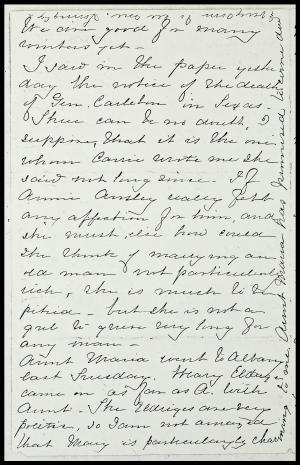 We are good for many
winters yet -
I said in the paper yester
day the notice of the death
of Gen. Carleton in Texas -
There can be no doubt, I
suppose, that it is the one
whom Carrie wrote me she
said not long since. If
Annie really felt
any affection for him, and
she must, else how could
she think of marrying an
old man not particularly
rich, she is much to be
pitied - but she is not a
girl to grieve very long for
any man -
Aunt Maria went to Albany
last Tuesday. Mary Eldridge
came on as far as A. with
Aunt. The Eldriges are very
positive, so I am not amazed
that Mary is particularly charm
ing to me. Aunt Maria has promised to